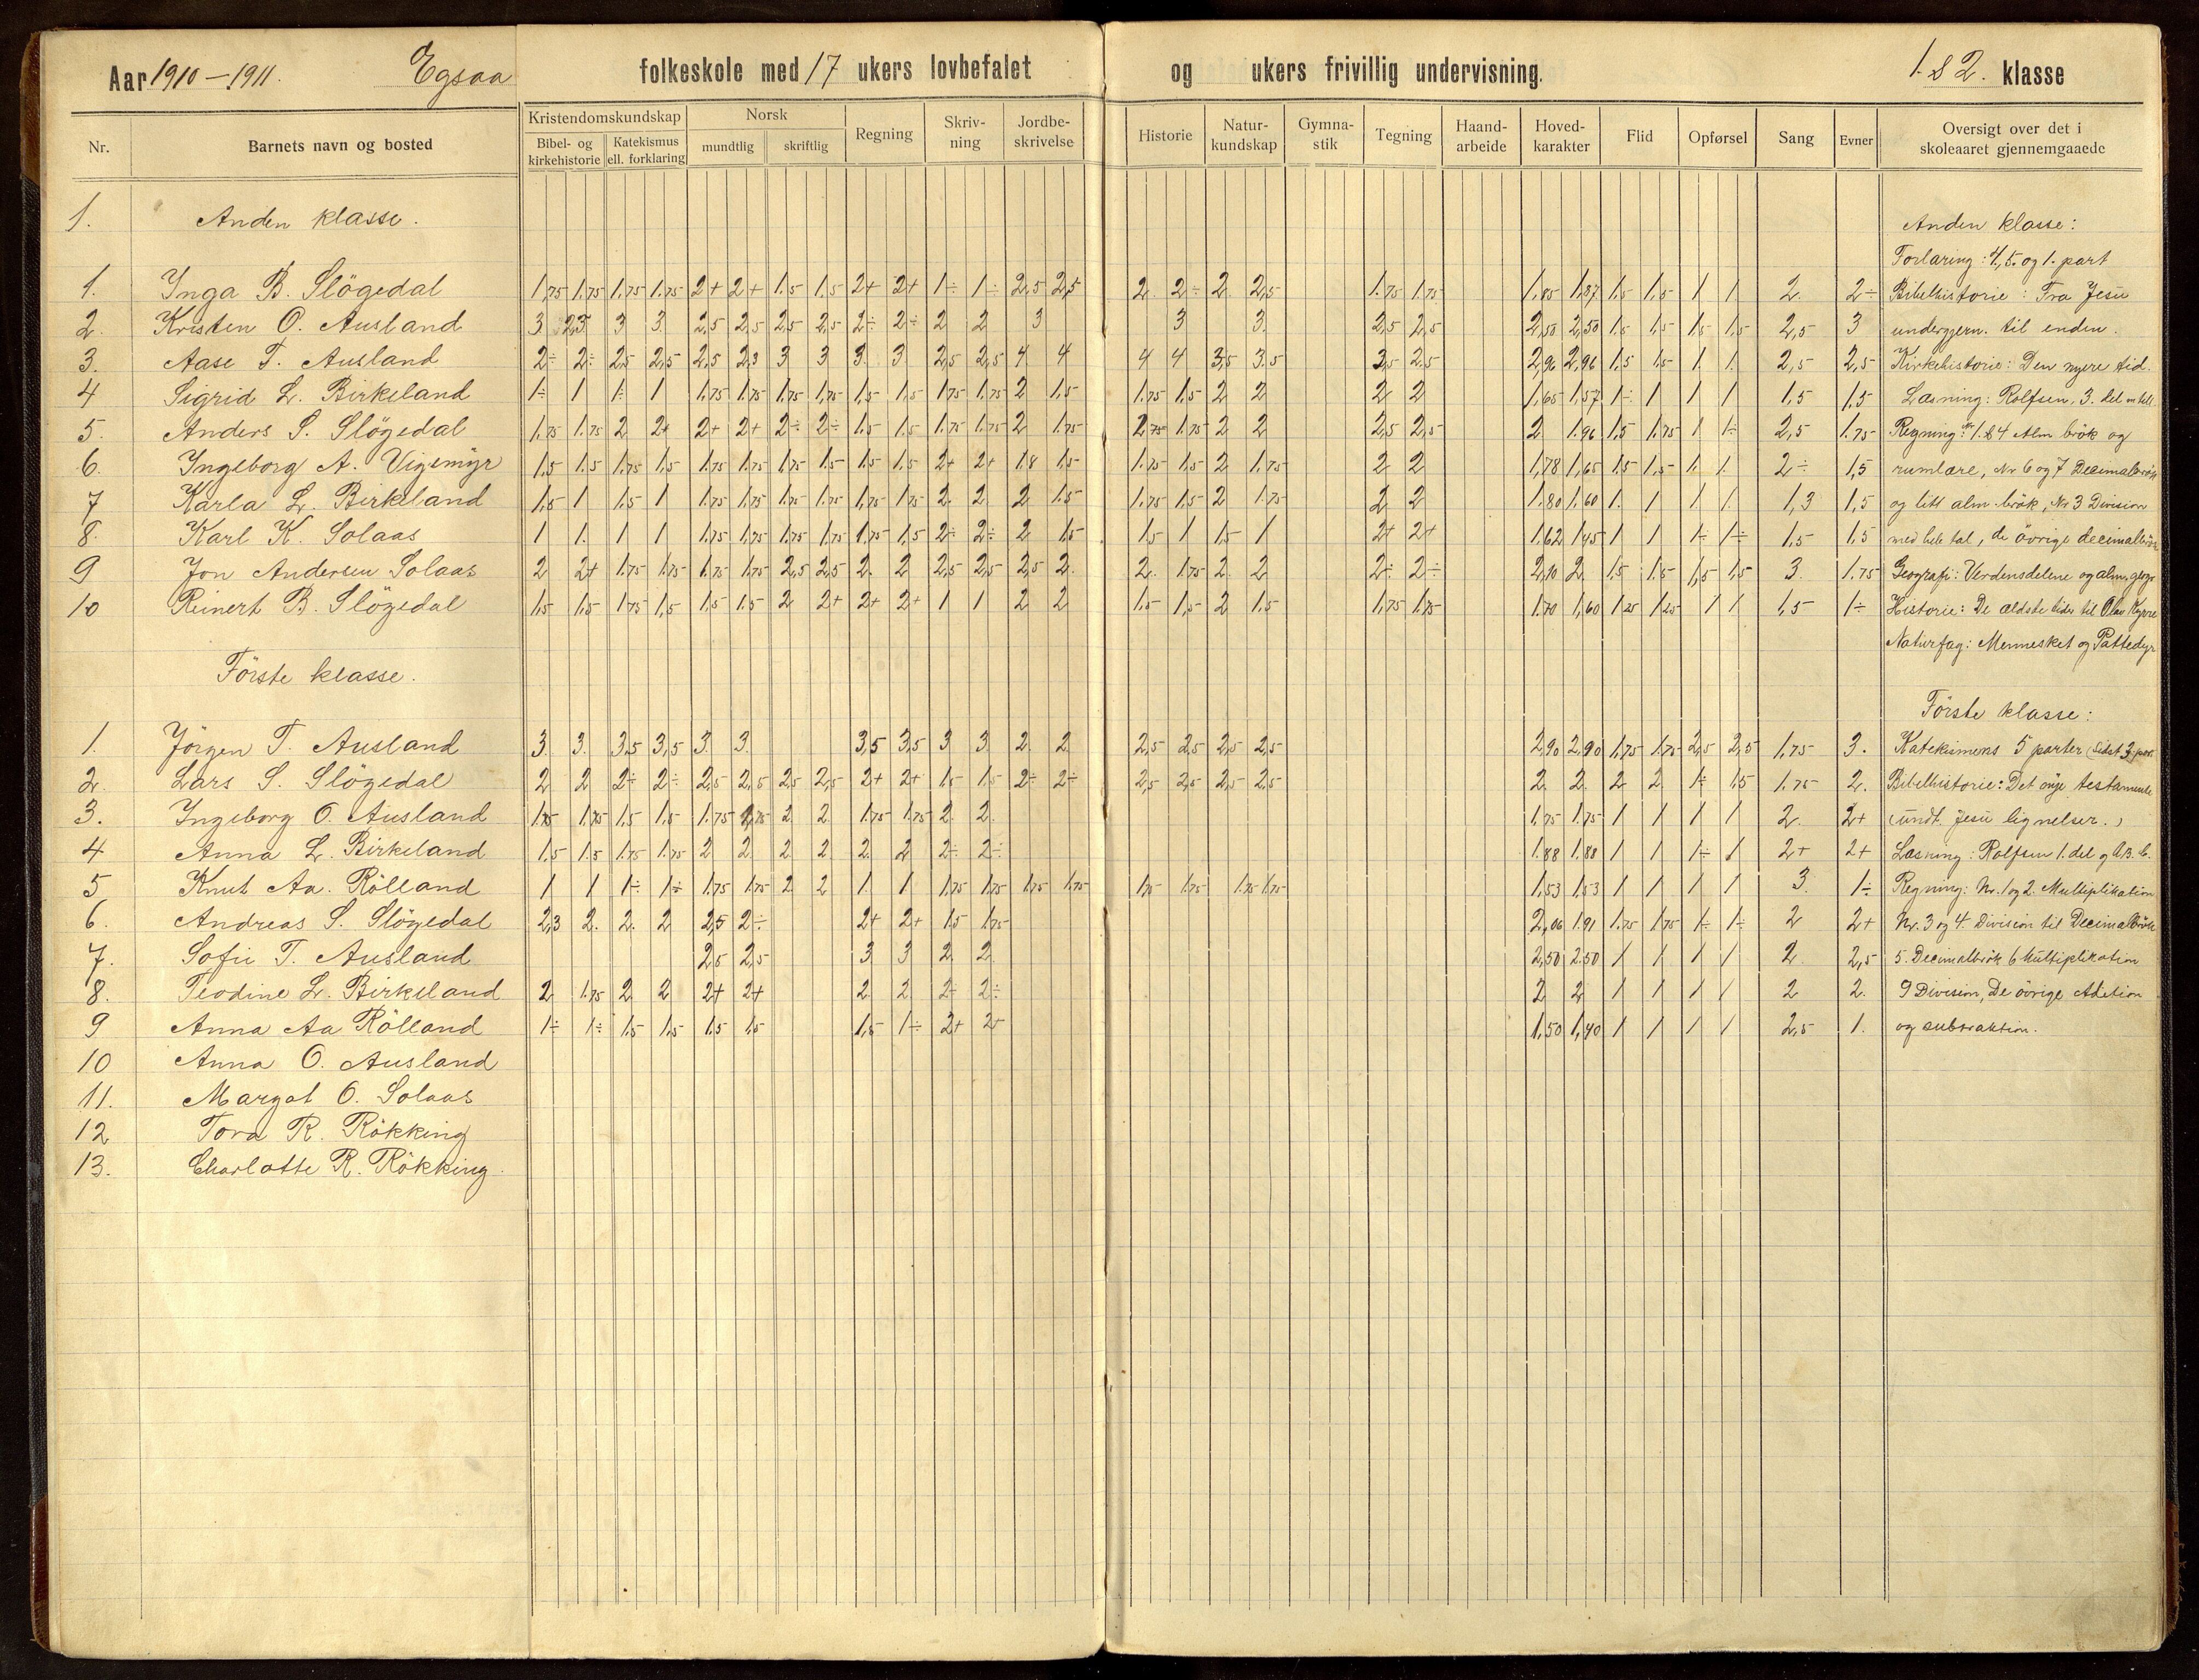 Aar 1910-1911. Egsaa folkeskole med 17 ukers lovbefalet og ukers frivillig undervisning. 1. & 2. klasse
Nr. Barnets navn og bosted Kristendomskundskap Bibel- og kirkehistorie Katekismus ell. forklaring Norsk mundtlig skriftlig Regning Skriv-ning Jordbe-skrivelse Historie Natur-kundskap Gymna-stik Tegning Haand-arbeide Hoved-karakter Flid Opførsel Sang Evner Oversigt over det i skoleaaret gjennemgaaede
1. Anden klasse. Anden klasse:
Forlaring: 4, 5. og 1. part
1. Inga B. Slögedal 1,75 1.75 1,75 1.75 2+ 2+ 1.5 1.5 2+ 2+ 1÷ 1÷ 2,5 2,5 2. 2÷ 2 2,5 1.75 1.75 1,85 1,87 1,5 1,5 1 1 2 2÷ Bibelhistorie: Fra Jesu
2. Kristen O. Ausland 3 2,5 3 3. 2,5 2,5 2,5 2,5 2÷ 2÷ 2 2 3 3 3. 2,5 2,5 2,50 2,50 1.5 1,5 1,5 1,5 2,5 3 undergjern. til enden.
3. Aase T. Ausland 2÷ 2÷ 2,5 2,5 2,5 2,3 3 3 3. 3 2,5 2,5 4 4 4 4 3,5 3.5 2,5 2.5 2,96 2,96 1,5 1,5 1. 1. 2,5 2,5 Kirkehistorie: Den nyere tid.
4 Sigrid L. Birkeland 1÷ 1 1÷ 1 1.75 1.75 1.75 1,75 1,5 1,5 1.75 1.75 2 1,5 1.75 1,5 2 2 2 2 1,65 1,57 1÷ 1 1 1 1,5 1,5 Læsning: Rolfsen, 3. del
5. Anders S. Slögedal 1.75 1.75 2 2+ 2+ 2+ 2÷ 2÷ 1.5 1.5 1.75 1.75 2 1.75 2 1.75 2 2 2,5 2,5 2 1.96 1,5 1.75 1 1÷ 2,5 1.75 Regning: Nr 1. & 4 Alm brök og
6. Ingeborg A. Vigemyr 1,5 1.5 1.75 1.5 1.75 1.75 1.75 1.5 1.5 1,5 2+ 2+ 1.8 1,5 1.75 1,5 2 1.75 2 2 1,78 1,65 1,5 1,5 1. 1. 2÷ 1,5 rumlære, Nr 6 og 7 Decimalbrök
7 Karla L. Birkeland 1,5 1 1.5 1 1.75 1.75 1.75 1.75 1,75 1.75 2. 2 2 1.5 1.75 1,5 2 1.75 2 2 1.80 1.60 1. 1 1 1. 1,3 1,5 og litt alm. brök, Nr 3 Division
8. Karl K. Solaas 1 1. 1 1 1.75 1.75 1.75 1.75 1.75 1,5 2÷ 2÷ 2 1.5 1.5 1 1.5 1 2+ 2+ 1.62 1.45 1 1 1÷ 1÷ 1.5 1.5 med hele tal, de övrige decimalbrök
9 Jon Andersen Solaas 2 2+ 1.75 1.75 1.75 1.75 2,5 2,5 2. 2 2,5 2,5 2,5 2. 2. 1.75 2 2 2÷ 2÷ 2,10 2 1,5 1.5 1,5 1,5 3. 1.75 Geografi: Verdensdelene og alm. geogr
10 Reinert B. Slögedal 1.5 1,5 1.75 1,5 1,5 1.5 2 2+ 2+ 2+ 1 1 2 2 1.5 1,5 2 1.5 1.75 1.75 1.70 1,60 1.25 1.25 1 1 1,5 1÷ Historie: De ældste tider til Olav Kyrre
Naturfag: Mennesket og Pattedyr
Förste klasse.
Förste klasse:
1. Jörgen T. Ausland 3. 3. 3,5 3,5 3. 3. 3,5 3,5 3 3. 2. 2. 2,5 2,5 2,5 2,5 2,90 2,90 1,75 1.75 2,5 2,5 1.75 3. Katekismens 5 parter (sidst 3 part
2. Lars S. Slögedal 2 2 2÷ 2÷ 2,5 2,5 2,5 2,5 2+ 2+ 1.5 1.5 2÷ 2÷ 2,5 2,5 2,5 2,5 2. 2. 2 2. 1÷ 1,5 1.75 2. Bibelhistorie: Det nye testamente
3. Ingeborg O. Ausland 1.75 1.75 1.5 1.5 1.75 1,75 2 2 1.75 1.75 2. 2. 1.75 1.75 1 1 1 1 2. 2+ (undt. Jesu lignelser.)
4 Anna L. Birkeland 1.5 1.5 1.75 1.75 2 2. 2. 2 2. 2 2÷ 2÷ 1.88 1.88 1 1 1÷ 1 2+ 2+ Læsning: Rolfsen 1. del og A.B.C.
5 Knut Aa. Rölland 1 1 1÷ 1÷ 1.75 1.75 2 2 1. 1 1.75 1.75 1.75 1.75 1.75 1.75 1.75 1.75 1,53 1.53 1 1 1 1 3. 1÷ Regning: Nr. 1 og 2. Multiplikation
6. Andreas S. Slögedal 2,3 2. 2. 2 2,5 2÷ 2+ 2+ 1.5 1.75 2,06 1.91 1.75 1.75 1÷ 1÷ 2 2+ Nr. 3 og 4 Division til Decimalbrök
7. Sofie T. Ausland 2,5 2,5 3 3 2. 2. 2,50 2.50 1 1 1 1 2. 2,5 5. Decimalbrök 6 Multiplikation
8. Teodine L. Birkeland 2 1.75 2 2 2+ 2+ 2. 2 2÷ 2÷ 2 2 1 1 1 1 2 2. 9 Division, De övrige Adition
9 Anna Aa Rölland 1÷ 1÷ 1.5 1,5 1.5 1.5 1,5 1÷ 2+ 2+ 1,50 1,40 1 1 1 1 2,5 1. og subtraktion.
10 Anna O. Ausland
11. Margot O. Solaas
12 Tora R. Rökking
13. Charlotte R. Rökking.